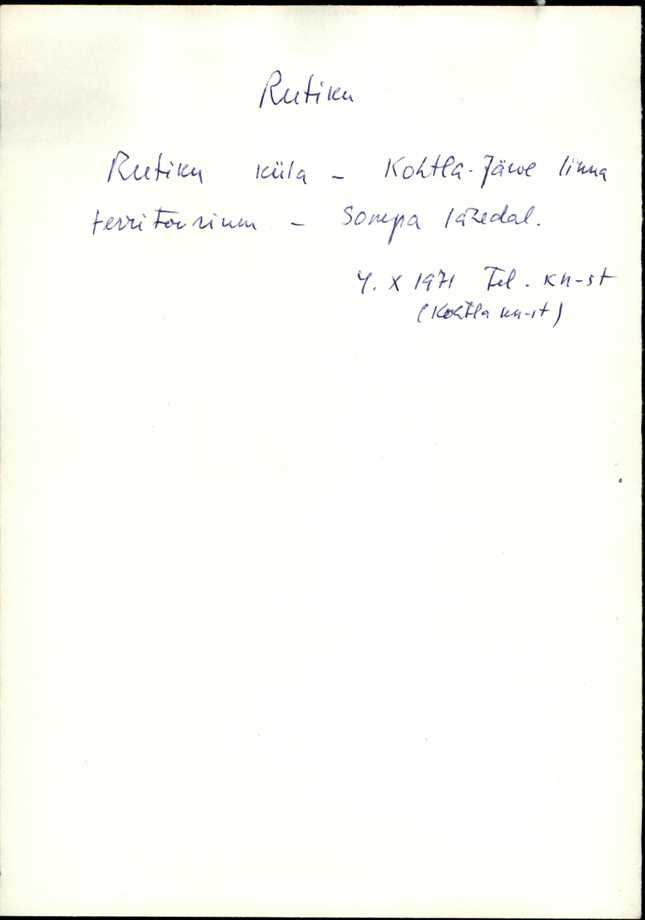 Rutiku
Rutiku küla - Kohtla-Järve linna
territoorium - Sompa lähedal.
4. X 1971 Tel. kn-st
(Kohtla kn-st)